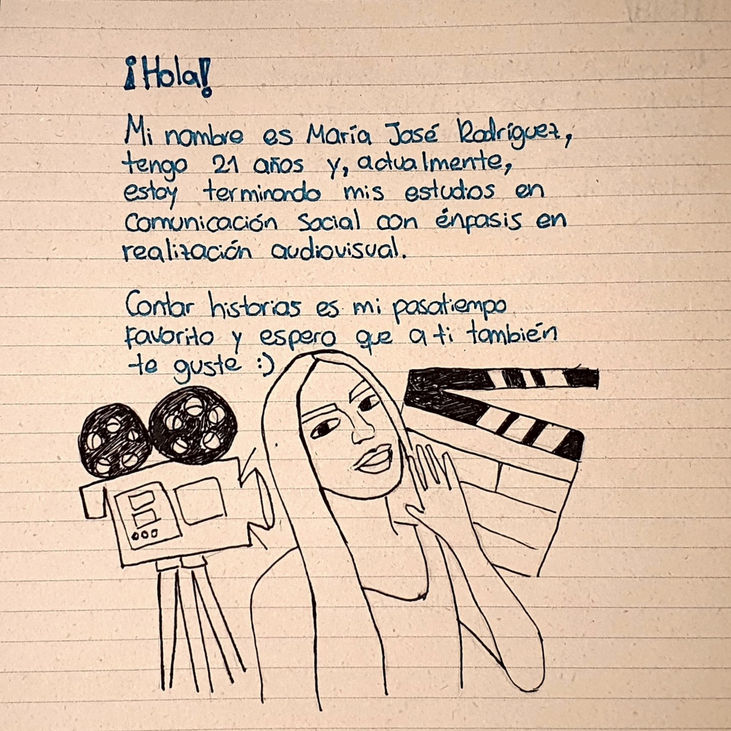 ¡Hola!
Mi nombre es María José Rodríguez,
tengo 21 años y, actualmente,
estoy terminando mis estudios en
Comunicación Social con énfasis en
realización audiovisual.
Contar historias es mi pasatiempo
favorito y espero que a ti también
te guste :)